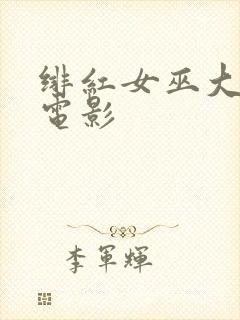 绯红女巫大
電影
李軍輝